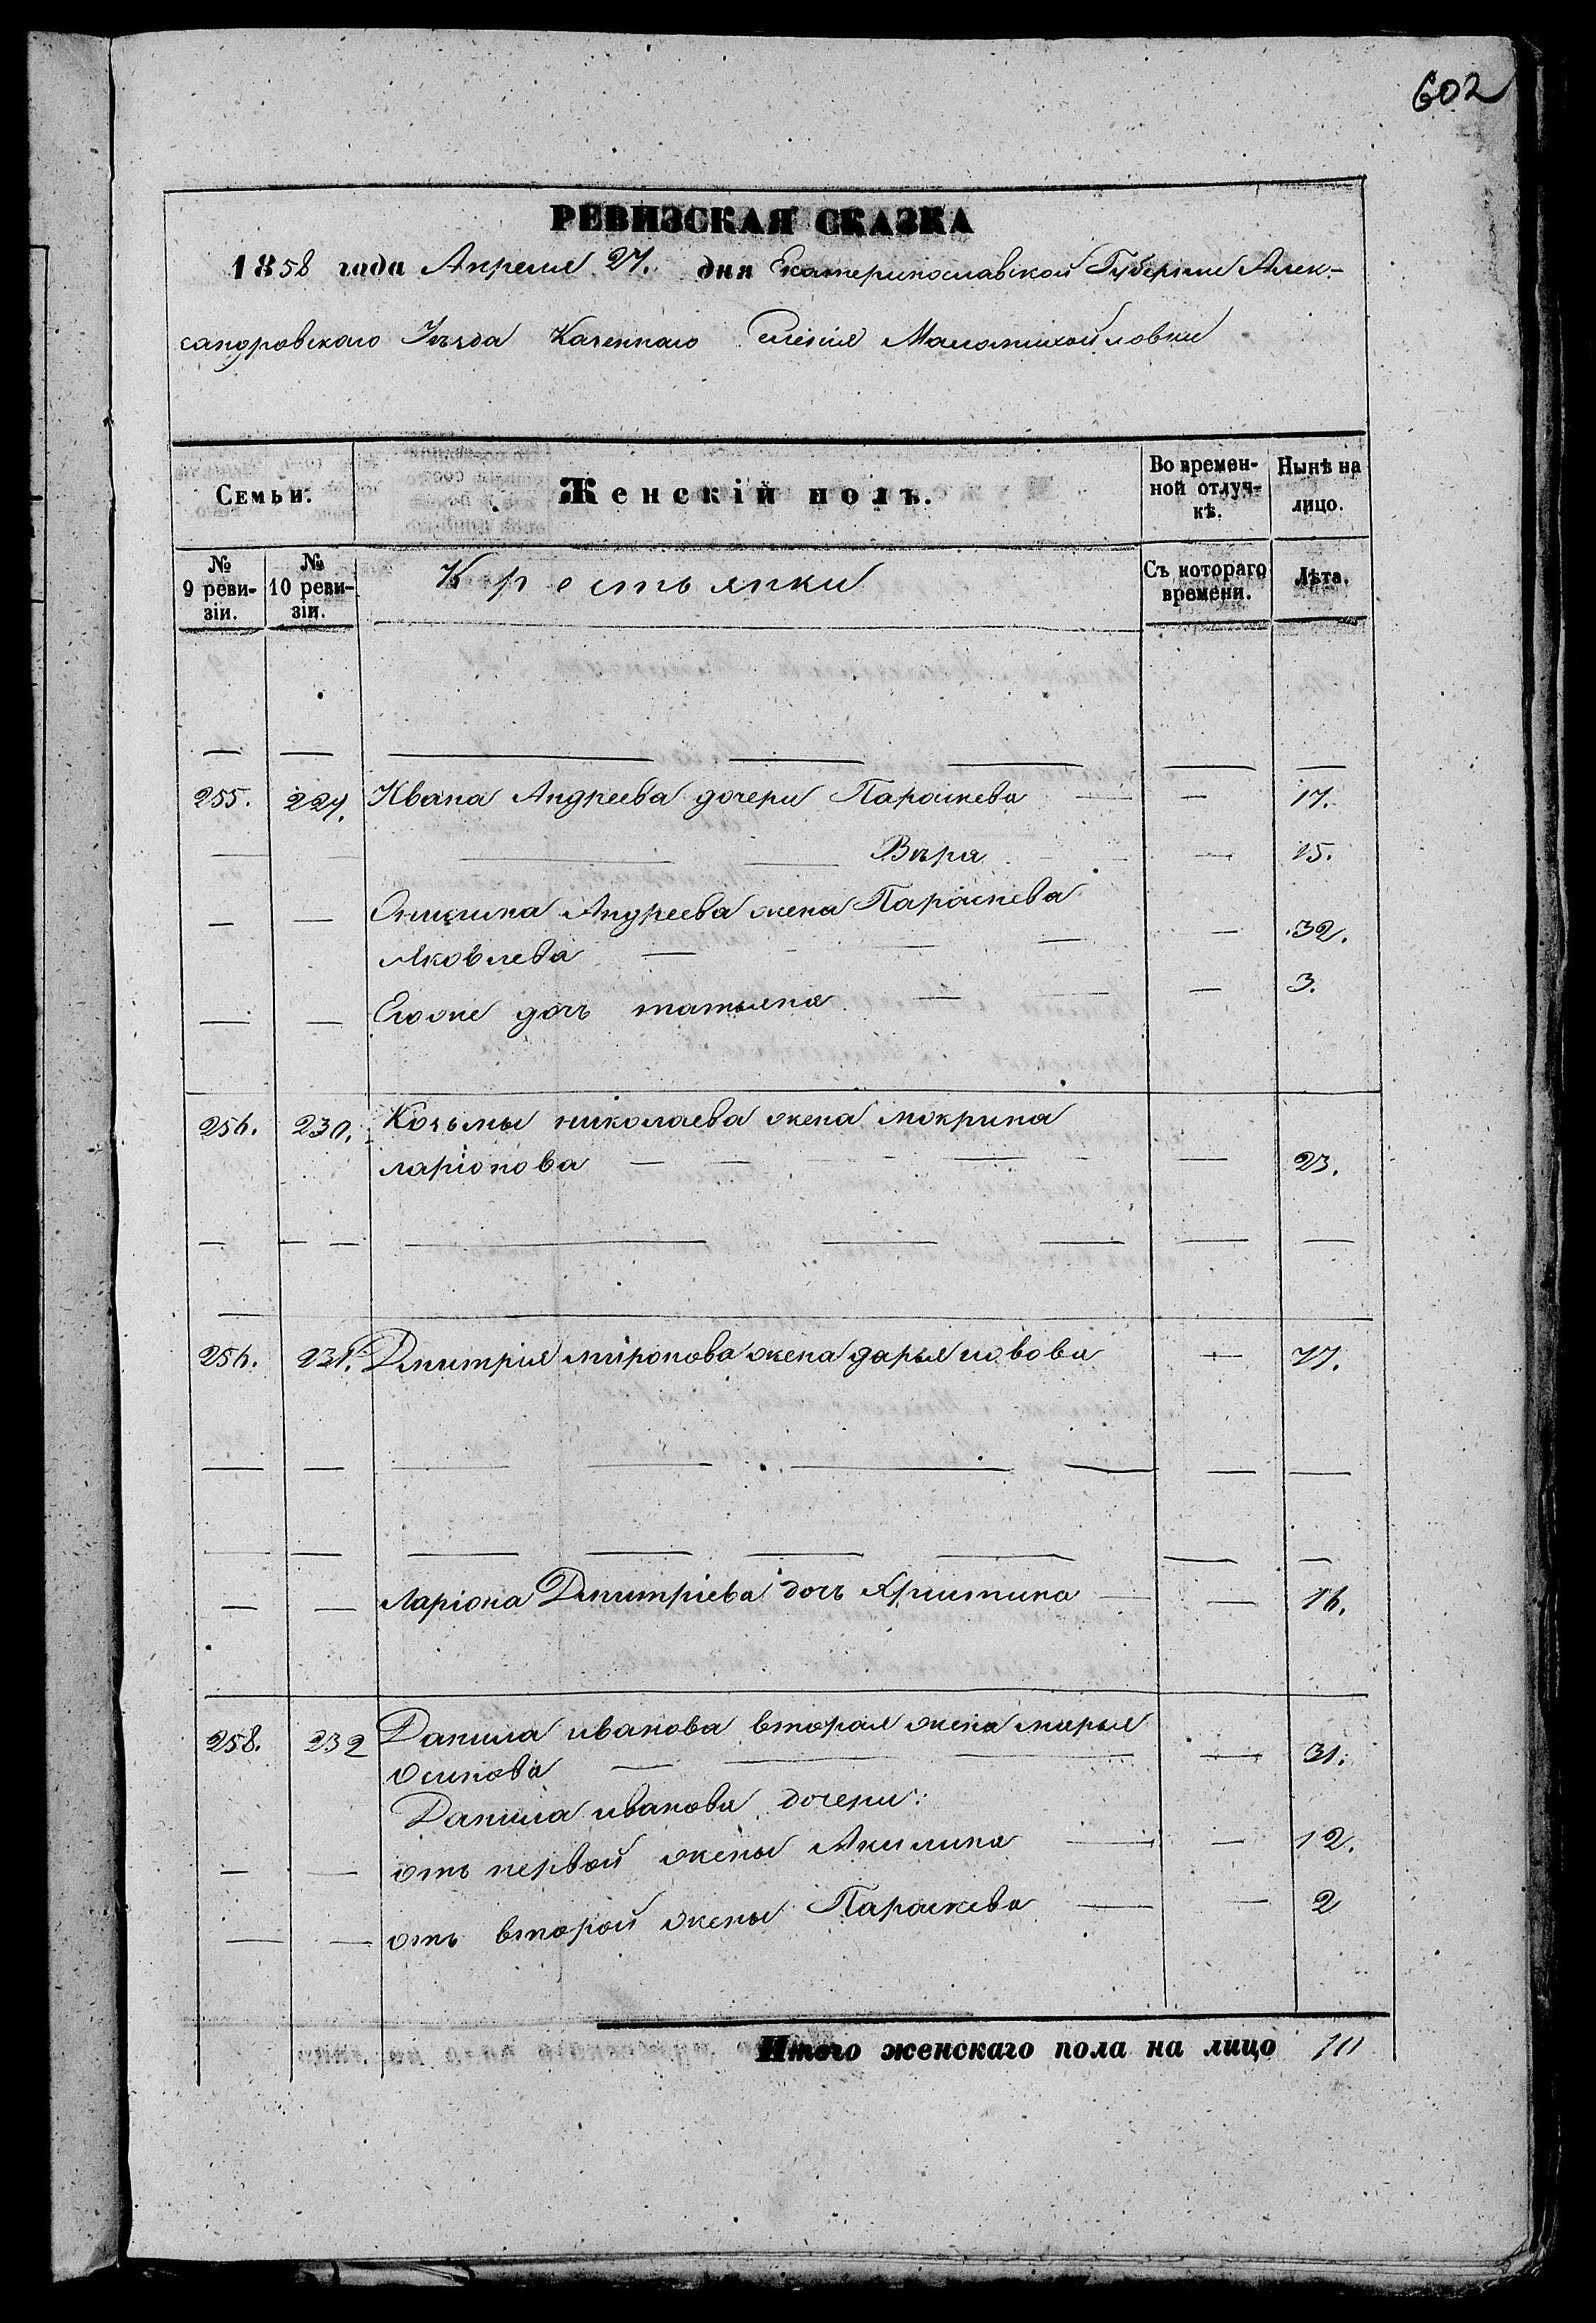 602
РЕВИЗСКАЯ СКАЗКА
1858 года Апреля 27. дня Екатеринославской Губернии Алек-
сандровскаго Уѣзда Казеннаго Селенія Маломихайловки
Семьи. Женскій полъ. Во времен-ной отлуч-кѣ. Нынѣ на лицо.
№ 9 реви-зіи. № 10 реви-зіи. Крестьянки Съ котораго времени. Лѣта.
255. 229. Ивана Андреева дочери Параскева — — 17.
Вѣра — 15.
— — Андреева жена Параскева
Яковлева — — — — 32.
— — Егоже дочь татьяна — — — 3.
256. 230. Козьмы николаева жена мокрина
ларіонова — — — — — 23.
256. 231. Дмитрія миронова жена дарья — 77.
— — Ларіона Дмитріева дочь Христина — — 16.
258. 232 Данила иванова вторая жена марья
осипова — — — — 31.
Данила иванова дочери:
— — отъ первой жены Акилина — — 12.
— — отъ второй жены Параскева — — 2
Итого женскаго пола на лицо 10